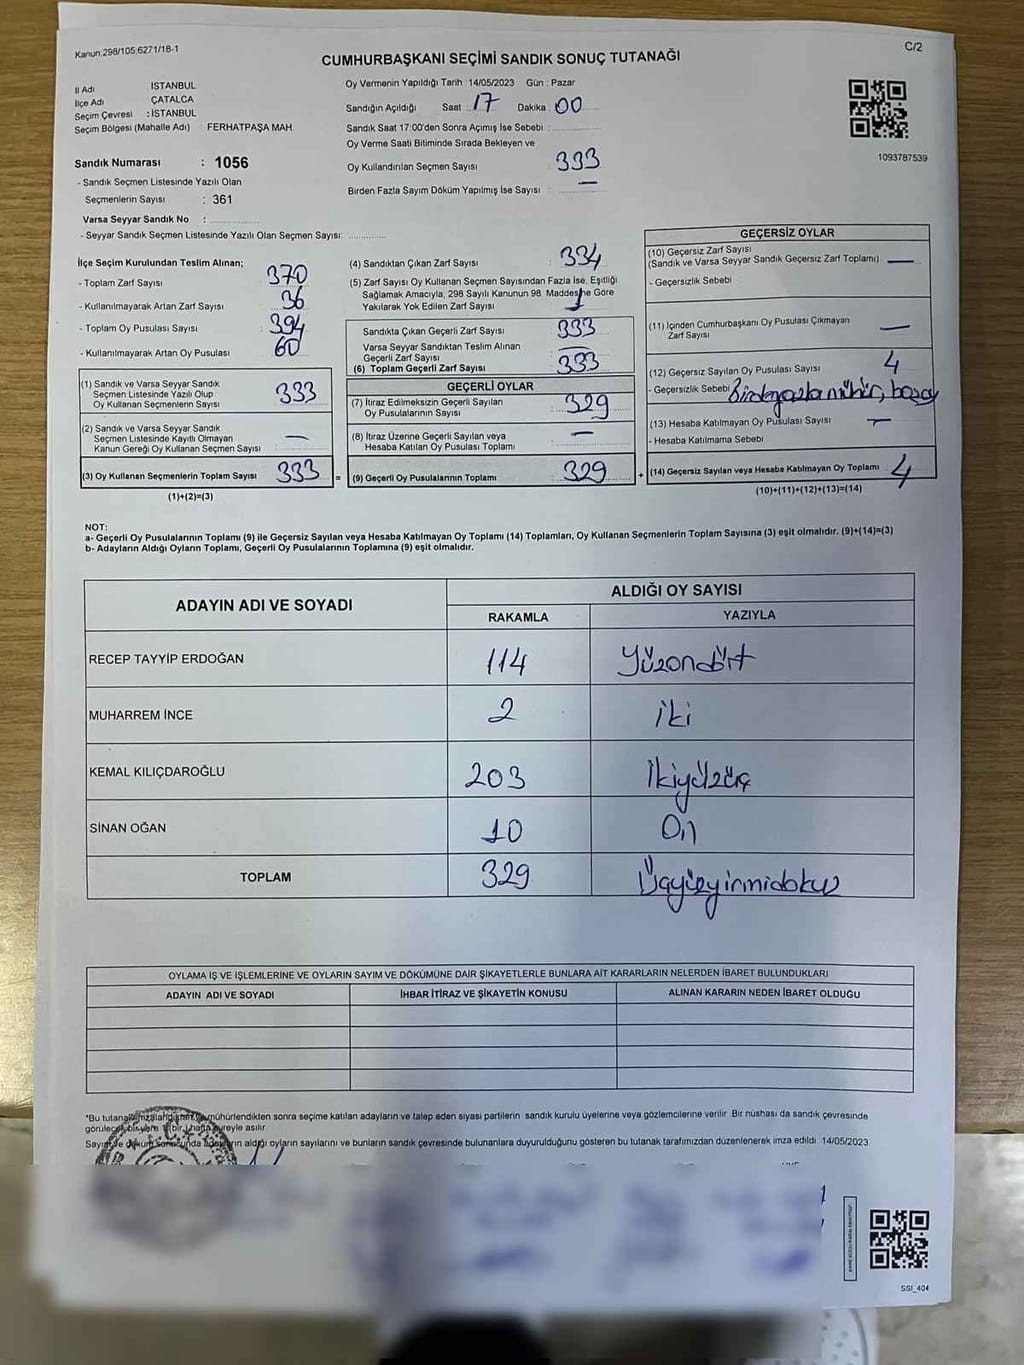 Kanun:298/105;6271/18-1
C/2
CUMHURBAŞKANI SEÇİMİ SANDIK SONUÇ TUTANAĞI
İl Adı : İSTANBUL
İlçe Adı : ÇATALCA
Seçim Çevresi : İSTANBUL
Seçim Bölgesi (Mahalle Adı) : FERHATPAŞA MAH
Sandık Numarası : 1056
- Sandık Seçmen Listesinde Yazılı Olan
Seçmenlerin Sayısı : 361
Varsa Seyyar Sandık No :
- Seyyar Sandık Seçmen Listesinde Yazılı Olan Seçmen Sayısı:
Oy Vermenin Yapıldığı Tarih : 14/05/2023 Gün : Pazar
Sandığın Açıldığı Saat : 17 Dakika : 00
Sandık Saat 17:00'den Sonra Açımış İse Sebebi :
Oy Verme Saati Bitiminde Sırada Bekleyen ve
Oy Kullandırılan Seçmen Sayısı : 333
Birden Fazla Sayım Döküm Yapılmış İse Sayısı : —
1093787539
İlçe Seçim Kurulundan Teslim Alınan;
- Toplam Zarf Sayısı : 370
- Kullanılmayarak Artan Zarf Sayısı : 36
- Toplam Oy Pusulası Sayısı : 394
- Kullanılmayarak Artan Oy Pusulası : 60
(1) Sandık ve Varsa Seyyar Sandık
Seçmen Listesinde Yazılı Olup
Oy Kullanan Seçmenlerin Sayısı : 333
(2) Sandık ve Varsa Seyyar Sandık
Seçmen Listesinde Kayıtlı Olmayan
Kanun Gereği Oy Kullanan Seçmen Sayısı : —
(3) Oy Kullanan Seçmenlerin Toplam Sayısı : 333
(1)+(2)=(3)
(4) Sandıktan Çıkan Zarf Sayısı : 334
(5) Zarf Sayısı Oy Kullanan Seçmen Sayısından Fazla İse, Eşitliği
Sağlamak Amacıyla; 298 Sayılı Kanunun 98. Maddesine Göre
Yakılarak Yok Edilen Zarf Sayısı : 1
Sandıkta Çıkan Geçerli Zarf Sayısı : 333
Varsa Seyyar Sandıktan Teslim Alınan
Geçerli Zarf Sayısı : —
(6) Toplam Geçerli Zarf Sayısı : 333
GEÇERLİ OYLAR
(7) İtiraz Edilmeksizin Geçerli Sayılan
Oy Pusulalarının Sayısı : 329
(8) İtiraz Üzerine Geçerli Sayılan veya
Hesaba Katılan Oy Pusulası Toplamı : —
= (9) Geçerli Oy Pusulalarının Toplamı : 329
GEÇERSİZ OYLAR
(10) Geçersiz Zarf Sayısı
(Sandık ve Varsa Seyyar Sandık Geçersiz Zarf Toplamı) : —
- Geçersizlik Sebebi
(11) İçinden Cumhurbaşkanı Oy Pusulası Çıkmayan
Zarf Sayısı : —
(12) Geçersiz Sayılan Oy Pusulası Sayısı : 4
- Geçersizlik Sebebi : Birden fazla mühür,
(13) Hesaba Katılmayan Oy Pusulası Sayısı : —
- Hesaba Katılmama Sebebi
+ (14) Geçersiz Sayılan veya Hesaba Katılmayan Oy Toplamı : 4
(10)+(11)+(12)+(13)=(14)
NOT:
a- Geçerli Oy Pusulalarının Toplamı (9) ile Geçersiz Sayılan veya Hesaba Katılmayan Oy Toplamı (14) Toplamları, Oy Kullanan Seçmenlerin Toplam Sayısına (3) eşit olmalıdır. (9)+(14)=(3)
b- Adayların Aldığı Oyların Toplamı, Geçerli Oy Pusulalarının Toplamına (9) eşit olmalıdır.
ADAYIN ADI VE SOYADI
ALDIĞI OY SAYISI
RAKAMLA YAZIYLA
RECEP TAYYİP ERDOĞAN 114 Yüzondört
MUHARREM İNCE 2 iki
KEMAL KILIÇDAROĞLU 203 ikiyüzüç
SİNAN OĞAN 10 On
TOPLAM 329 Üçyüzyirmidokuz
OYLAMA İŞ VE İŞLEMLERİNE VE OYLARIN SAYIM VE DÖKÜMÜNE DAİR ŞİKAYETLERLE BUNLARA AİT KARARLARIN NELERDEN İBARET BULUNDUKLARI
ADAYIN ADI VE SOYADI İHBAR İTİRAZ VE ŞİKAYETİN KONUSU ALINAN KARARIN NEDEN İBARET OLDUĞU
*Bu mühürlendikten sonra seçime katılan adayların ve talep eden siyasi partilerin sandık kurulu üyelerine veya gözlemcilerine verilir. Bir nüshası da sandık çevresinde
asılır.
oyların sayılarını ve bunların sandık çevresinde bulunanlara duyurulduğunu gösteren bu tutanak tarafımızdan düzenlenerek imza edildi. 14/05/2023
SSI_404